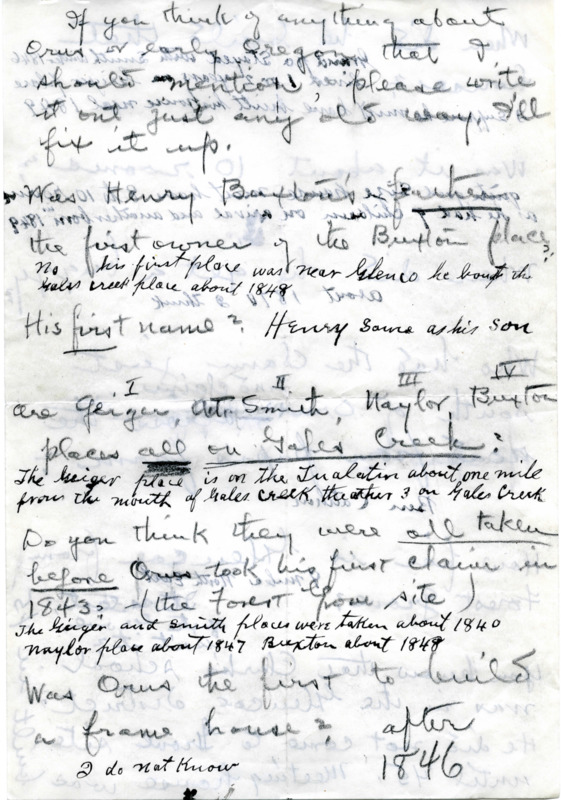 If you think of anything about
Orus or early Oregon that I
should mention please write
it out just any old way I'll
fix it up.
Was Henry Buxton's father
the first owner of the Buxton place?
No his first place was near Glenco he bought the
Gales creek place about 1848
His first name? Henry Same as his son
I II III IV
are Geiger, At. Smith, Naylor, Buxton
places all on Gales Creek?
The Geiger place is on the Tualatin about one mile
from the mouth of Gales Creek the other 3 on Gales Creek
Do you think they were all taken
before Orus took his first claim in
1843? (the Forest Grove site)
The Geiger and Smith places were taken about 1840
Naylor place about 1847 Buxton about 1848
Was Orus the first to build
a frame house? after
I do not Know 1846